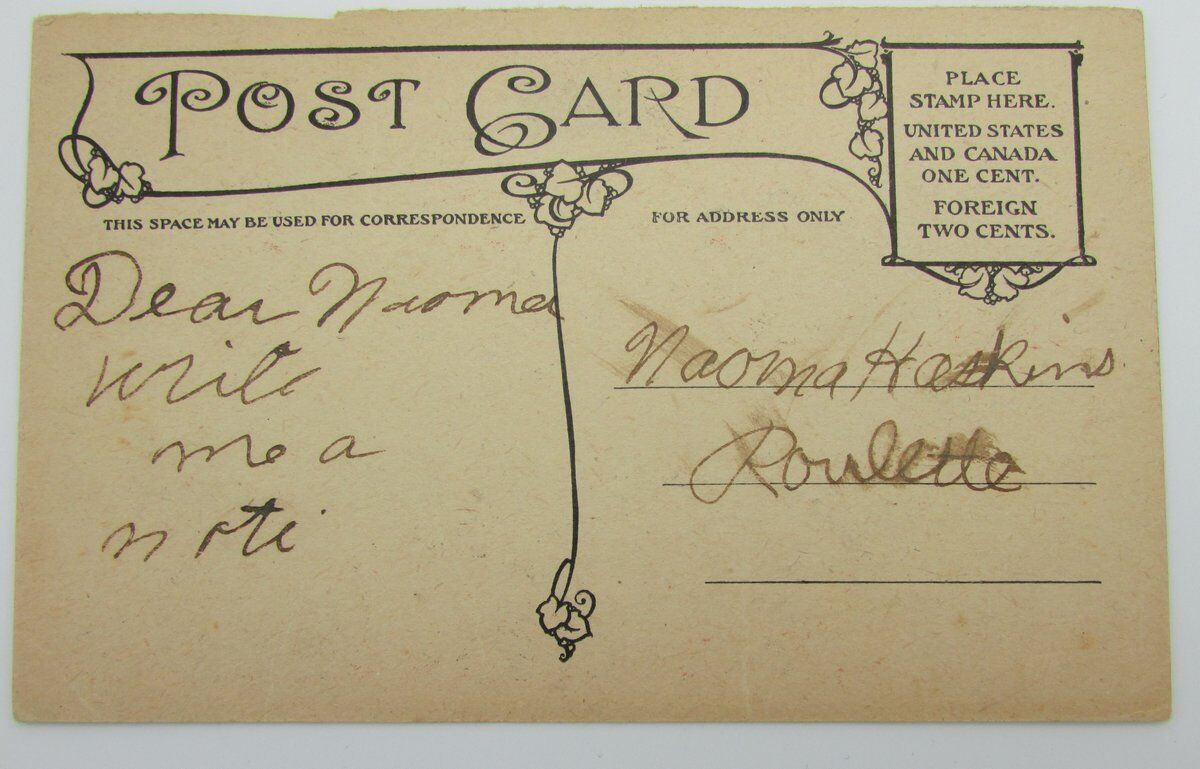 POST CARD
PLACE
STAMP HERE.
UNITED STATES
AND CANADA
ONE CENT.
FOREIGN
TWO CENTS.
THIS SPACE MAY BE USED FOR CORRESPONDENCE
FOR ADDRESS ONLY
Dear Naoma
write
me a
note
Naoma Haskins
Roulette